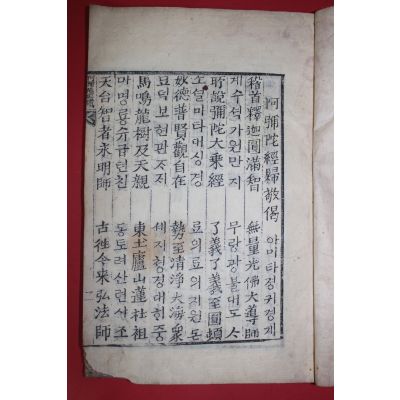 阿彌陀經歸敬偈 아미타경귀경게
稽首釋迦圓滿智 無量光佛大導師
계수석가원만지 무량광불대도ᄉᆞ
所說彌陀大乘經 了義了義至圓頓
소설미타대승경 료의료의지원돈
妙德普賢觀自在 勢至清淨大海衆
묘덕보현관자ᄌᆡ 세지청정대ᄒᆡ중
馬鳴龍樹及天親 東土廬山蓮社祖
마명룡슈급텬친 동토려산련사조
天台智者永明師 古徃今來弘法師
一